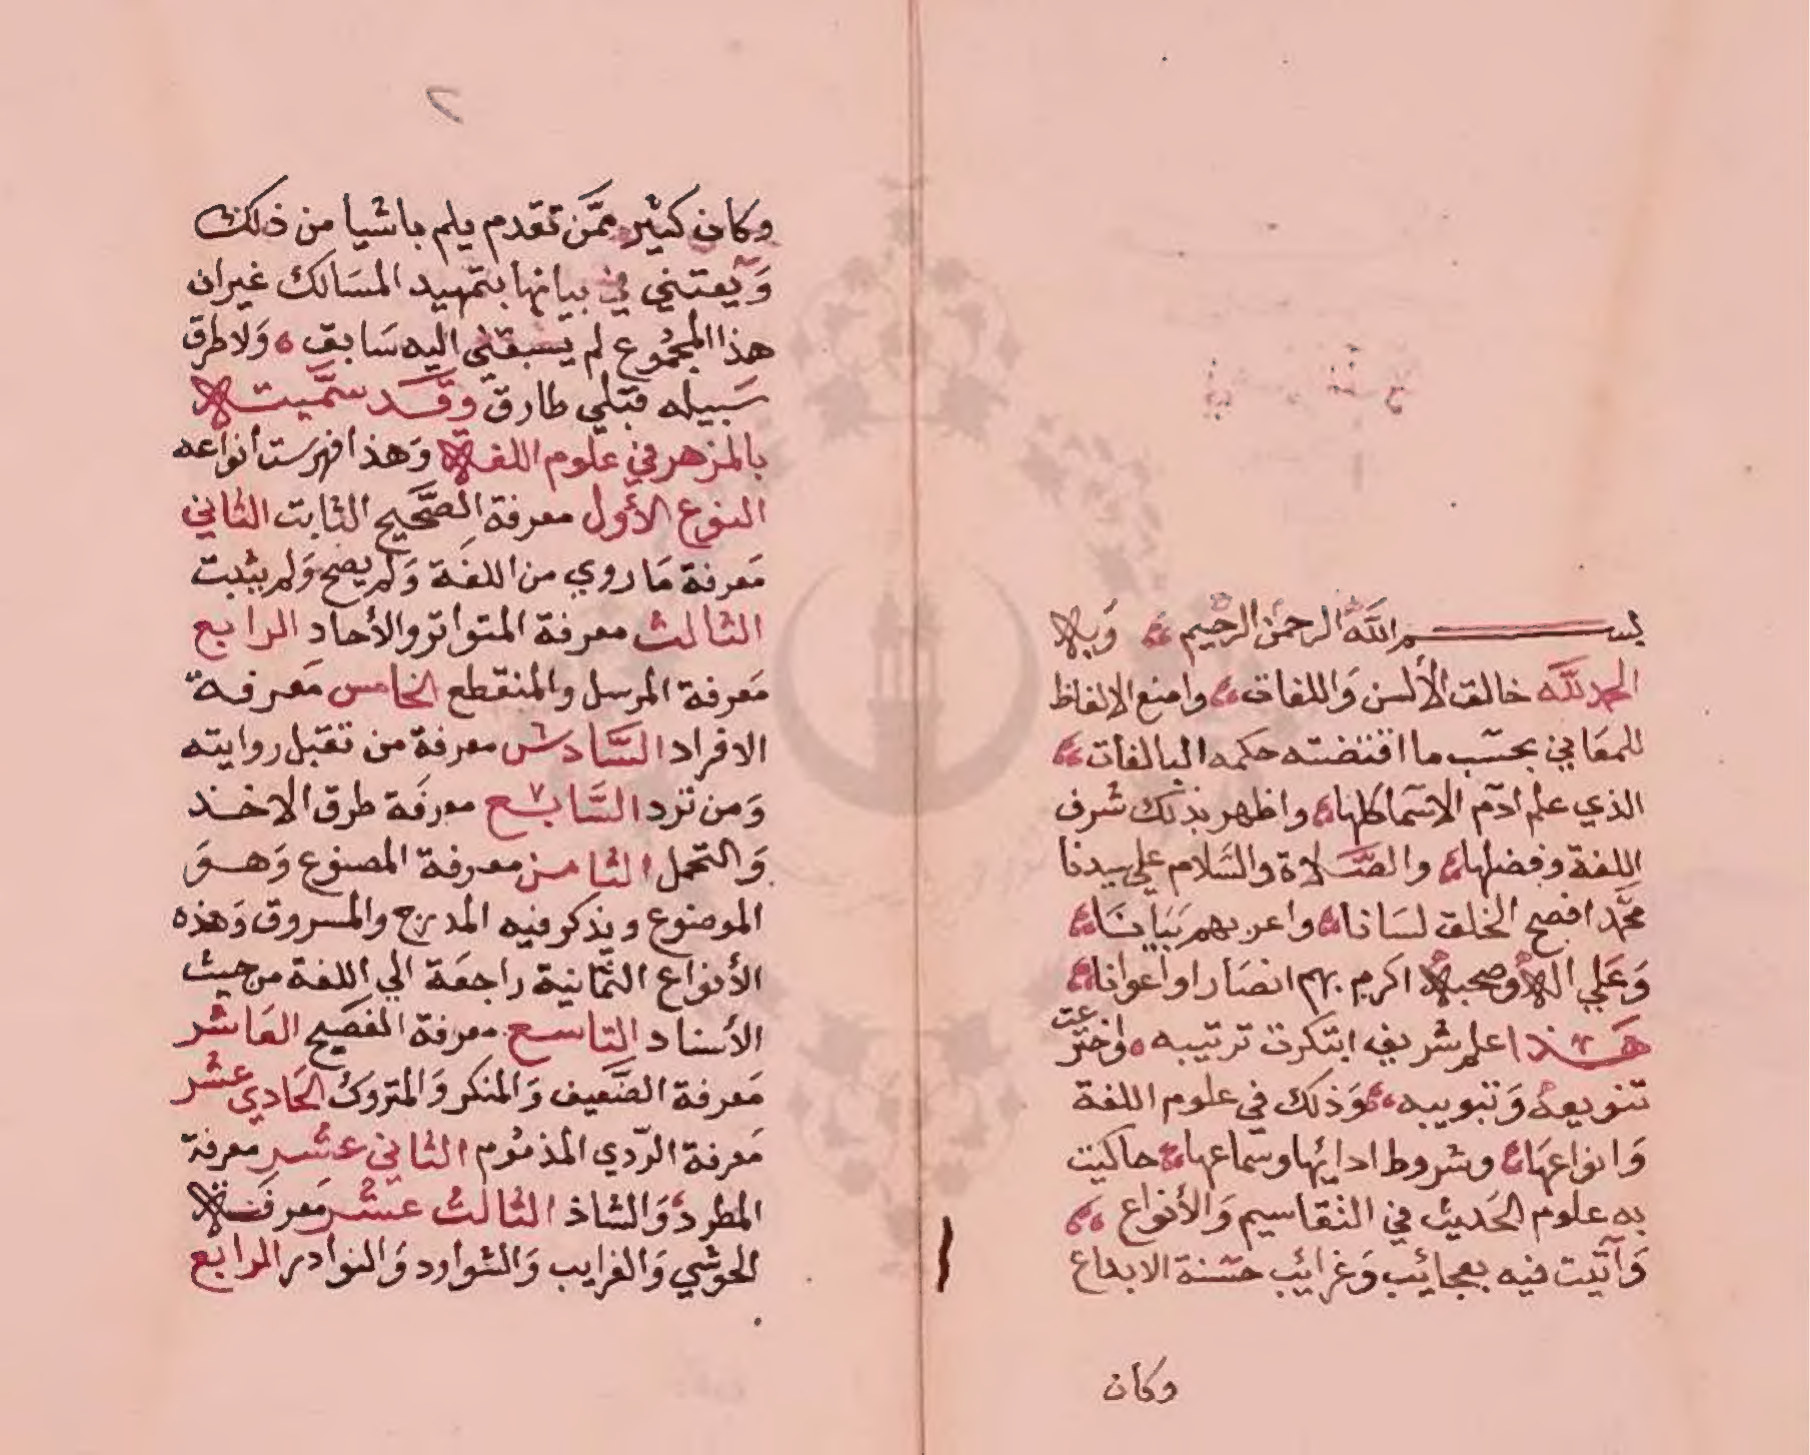 بسم الله الرحمن الرحيم وبه
الحمد لله خالق الألسن واللغات وامنع الالفاظ
للمعاني بحسب ما اقتضته حكمه البالغات
الذي علم ادم الاسما كلها واظهر بذلك شرف
اللغة وفضلها والصلاة والسلام علي سيدنا
محمد افصح الخلق لسانا واعربهم بيانا
وعلي اله وصحبه اكرم بهم انصارا واعوانا
هذا علم شريف ابتكرت ترتيبه واخترعت
تنويعه وتبويبه وذلك في علوم اللغة
وانواعها وشروط ادائها وسماعها حاكيت
به علوم الحديث في التقاسيم والأنواع
وآتيت فيه بعجائب وغرائب حسنة الابداع
وكان
٢
وكان كثير ممن تقدم يلم باشيا من ذلك
ويعتني في بيانها بتمهيد المسالك غير ان
هذا المجموع لم يسبقني اليه سابق ولا طرق
سبيله قبلي طارق وقد سميته
بالمزهر في علوم اللغة وهذا فهرست انواعه
النوع الأول معرفة الصحيح الثابت الثاني
معرفة ما روي من اللغة ولم يصح ولم يثبت
الثالث معرفة المتواتر والأحاد الرابع
معرفة المرسل والمنقطع الخامس معرفة
الافراد السادس معرفة من تقبل روايته
ومن ترد السابع معرفة طرق الاخذ
والتحمل الثامن معرفة المصنوع وهو
الموضوع ويذكر فيه المدرج والمسروق وهذه
الأنواع الثمانية راجعة الي اللغة من حيث
الأسناد التاسع معرفة الفصيح العاشر
معرفة الضعيف والمنكر والمتروك الحادي عشر
معرفة الردي المذموم الثاني عشر معرفة
المطرد والشاذ الثالث عشر معرفة
الحوشي والغرايب والشوارد والنوادر الرابع